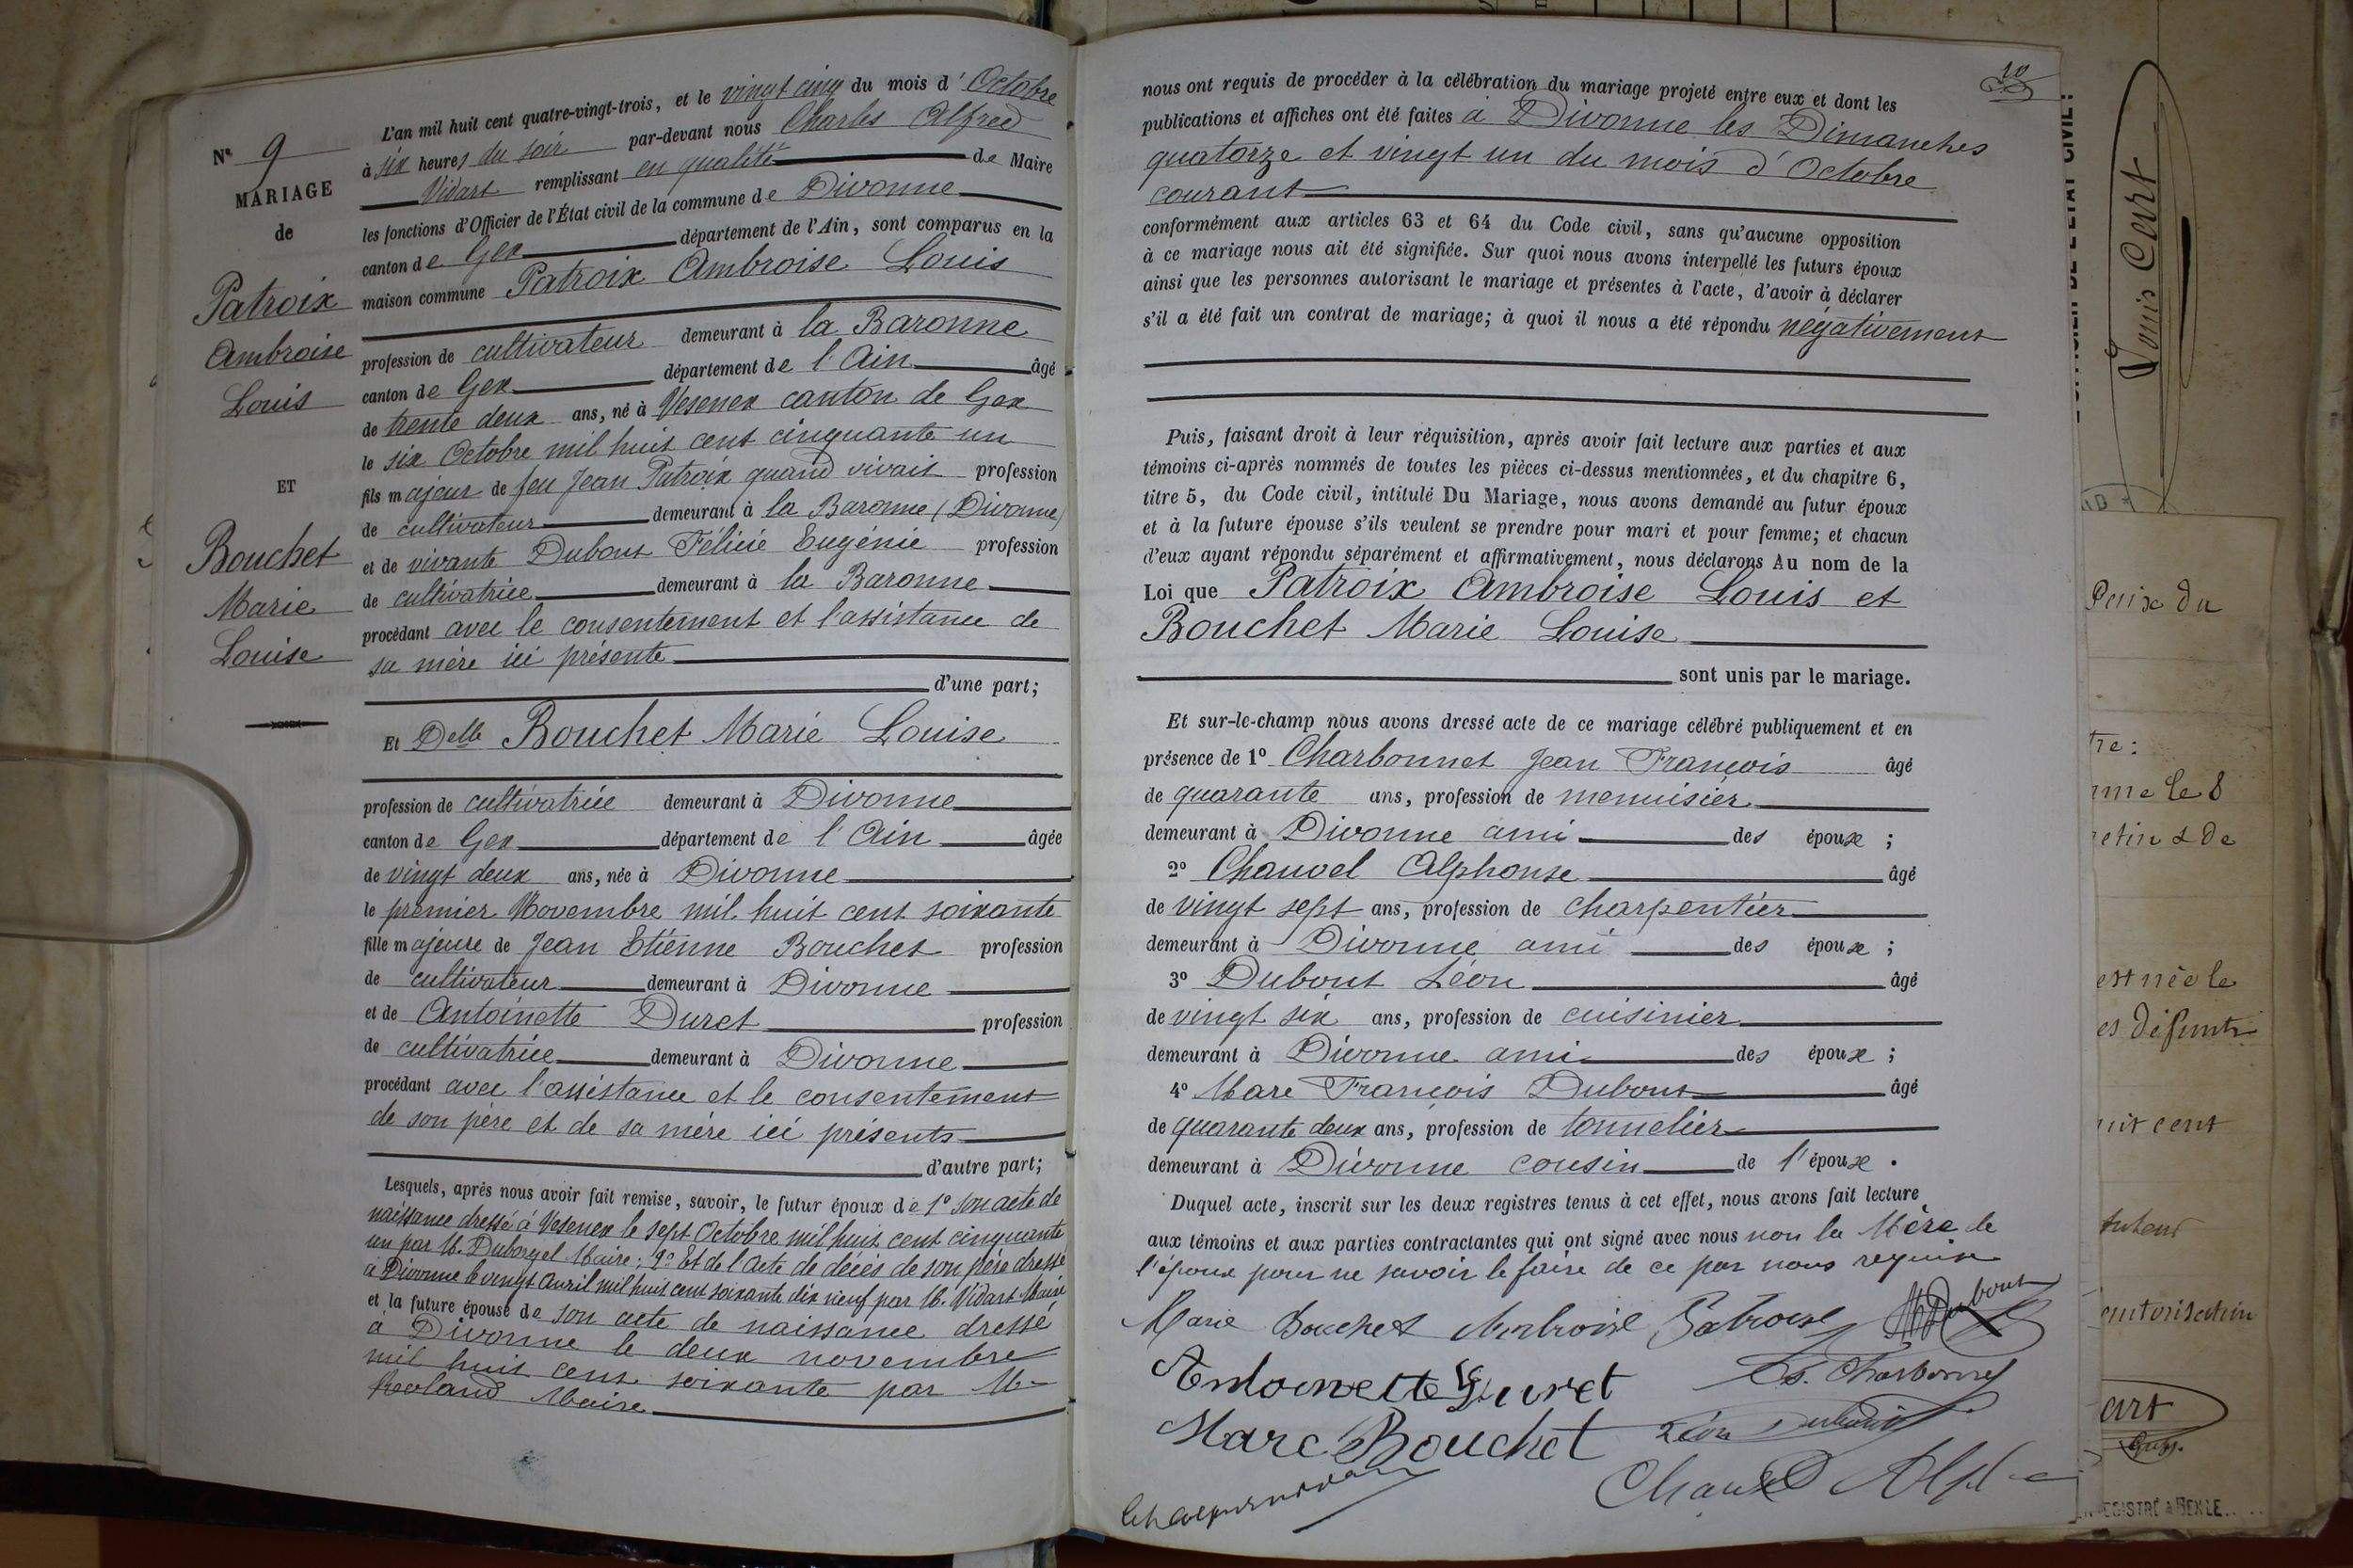 N° 9
MARIAGE
de
Patroix
Ambroise
Louis
ET
Bouchet
Marie
Louise
L'an mil huit cent quatre-vingt-trois, et le vingt cinq du mois d'Octobre
à six heures du soir par-devant nous Charles Alfred
Vidart remplissant en qualité de Maire
les fonctions d'Officier de l'État civil de la commune de Divonne
canton de Gex département de l'Ain, sont comparus en la
maison commune Patroix Ambroise Louis
profession de cultivateur demeurant à la Baronne
canton de Gex département de l'Ain âgé
de trente deux ans, né à Vesenex canton de Gex
le six Octobre mil huit cent cinquante un
fils majeur de feu Jean Patroix quand vivait profession
de cultivateur demeurant à la Baronne (Divonne)
et de vivante Dubout Félicie Eugénie profession
de cultivatrice demeurant à la Baronne
procédant avec le consentement et l'assistance de
sa mère ici présente
d'une part;
Et Delle Bouchet Marie Louise
profession de cultivatrice demeurant à Divonne
canton de Gex département de l'Ain âgée
de vingt deux ans, née à Divonne
le premier Novembre mil huit cent soixante
fille majeure de Jean Etienne Bouchet profession
de cultivateur demeurant à Divonne
et de Antoinette Duret profession
de cultivatrice demeurant à Divonne
procédant avec l'assistance et le consentement
de son père et de sa mère ici présents
d'autre part;
Lesquels, après nous avoir fait remise, savoir, le futur époux de 1° son acte de
naissance dressé à Vesenex le sept Octobre mil huit cent cinquante
un par M. Duborgel Maire; 2° Et de l'acte de décès de son père dressé
à Divonne le vingt avril mil huit cent soixante dix neuf par M. Vidart Maire
et la future épouse de son acte de naissance dressé
à Divonne le deux novembre
mil huit cent soixante par M.
Roland Maire
10
nous ont requis de procéder à la célébration du mariage projeté entre eux et dont les
publications et affiches ont été faites à Divonne les Dimanches
quatorze et vingt un du mois d'Octobre
courant
conformément aux articles 63 et 64 du Code civil, sans qu'aucune opposition
à ce mariage nous ait été signifiée. Sur quoi nous avons interpellé les futurs époux
ainsi que les personnes autorisant le mariage et présentes à l'acte, d'avoir à déclarer
s'il a été fait un contrat de mariage; à quoi il nous a été répondu négativement
Puis, faisant droit à leur réquisition, après avoir fait lecture aux parties et aux
témoins ci-après nommés de toutes les pièces ci-dessus mentionnées, et du chapitre 6,
titre 5, du Code civil, intitulé Du Mariage, nous avons demandé au futur époux
et à la future épouse s'ils veulent se prendre pour mari et pour femme; et chacun
d'eux ayant répondu séparément et affirmativement, nous déclarons Au nom de la
Loi que Patroix Ambroise Louis et
Bouchet Marie Louise
sont unis par le mariage.
Et sur-le-champ nous avons dressé acte de ce mariage célébré publiquement et en
présence de 1° Charbonnet Jean François âgé
de quarante ans, profession de menuisier
demeurant à Divonne ami des époux;
2° Chauvel Alphonse âgé
de vingt sept ans, profession de charpentier
demeurant à Divonne ami des époux;
3° Dubout Léon âgé
de vingt six ans, profession de cuisinier
demeurant à Divonne ami des époux;
4° Marc François Dubout âgé
de quarante deux ans, profession de tonnelier
demeurant à Divonne cousin de l'époux.
Duquel acte, inscrit sur les deux registres tenus à cet effet, nous avons fait lecture
aux témoins et aux parties contractantes qui ont signé avec nous non la Mère de
l'époux pour ne savoir le faire de ce par nous requise
Marie Bouchet Ambroise Patroix Dubout
Antoinette Duret
Marc Bouchet Léon
Louis Curt
Paix du
me le 8
est née le
es défunts
uit cent
autorisation
art